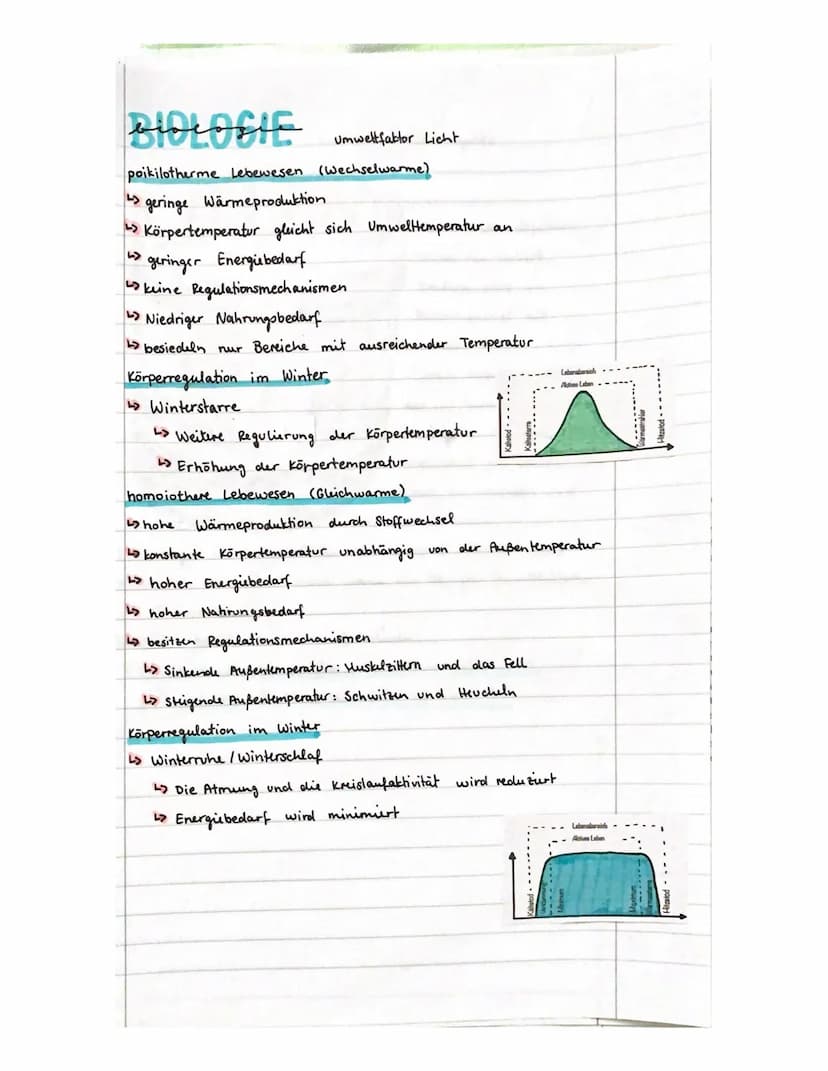 BIOLOGIE
biologie
Umweltfaktor Licht
poikilotherme Lebewesen (Wechselwarme)
↳ geringe Wärmeproduktion
↳ Körpertemperatur gleicht sich Umwelttemperatur an
↳ geringer Energiebedarf
↳ keine Regulationsmechanismen
↳ Niedriger Nahrungsbedarf
↳ besiedeln nur Bereiche mit ausreichender Temperatur
Körperregulation im Winter
↳ Winterstarre
↳ Weitere Regulierung der Körpertemperatur
↳ Erhöhung der Körpertemperatur
Lebensbereich
Aktives Leben
Kältetod
Kältestarre
Wärmestarre
Hitzetod
homoiothere Lebewesen (Gleichwarme)
↳ hohe Wärmeproduktion durch Stoffwechsel
↳ konstante Körpertemperatur unabhängig von der Außentemperatur
↳ hoher Energiebedarf
↳ hoher Nahrungsbedarf
↳ besitzen Regulationsmechanismen
↳ Sinkende Außentemperatur: Muskelzittern und das Fell
↳ Steigende Außentemperatur: Schwitzen und Heucheln
Körperregulation im Winter
↳ Winterruhe / Winterschlaf
↳ Die Atmung und die Kreislaufaktivität wird reduziert
↳ Energiebedarf wird minimiert
Lebensbereich
Aktives Leben
Kältetod
Minimum
Maximum
Hitzetod